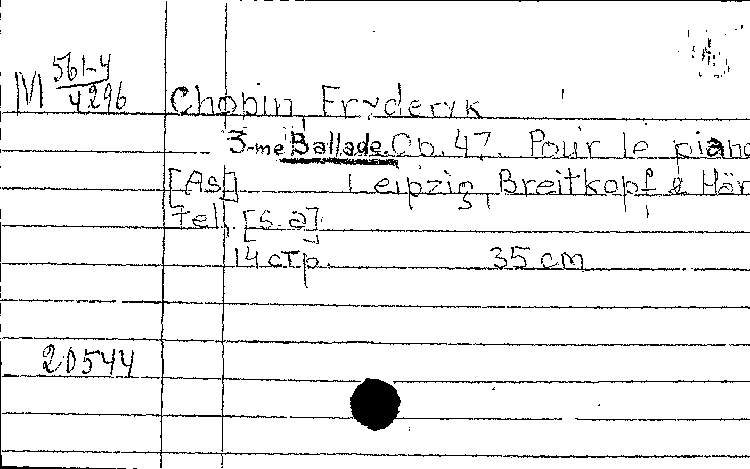 М 561-4/4296
Chopin, Fryderyk
3-me Ballade. Op. 47. Pour le piano
[As] Leipzig, Breitkopf & Här
tel, [s.a].
14 стр. 35 cm
20544